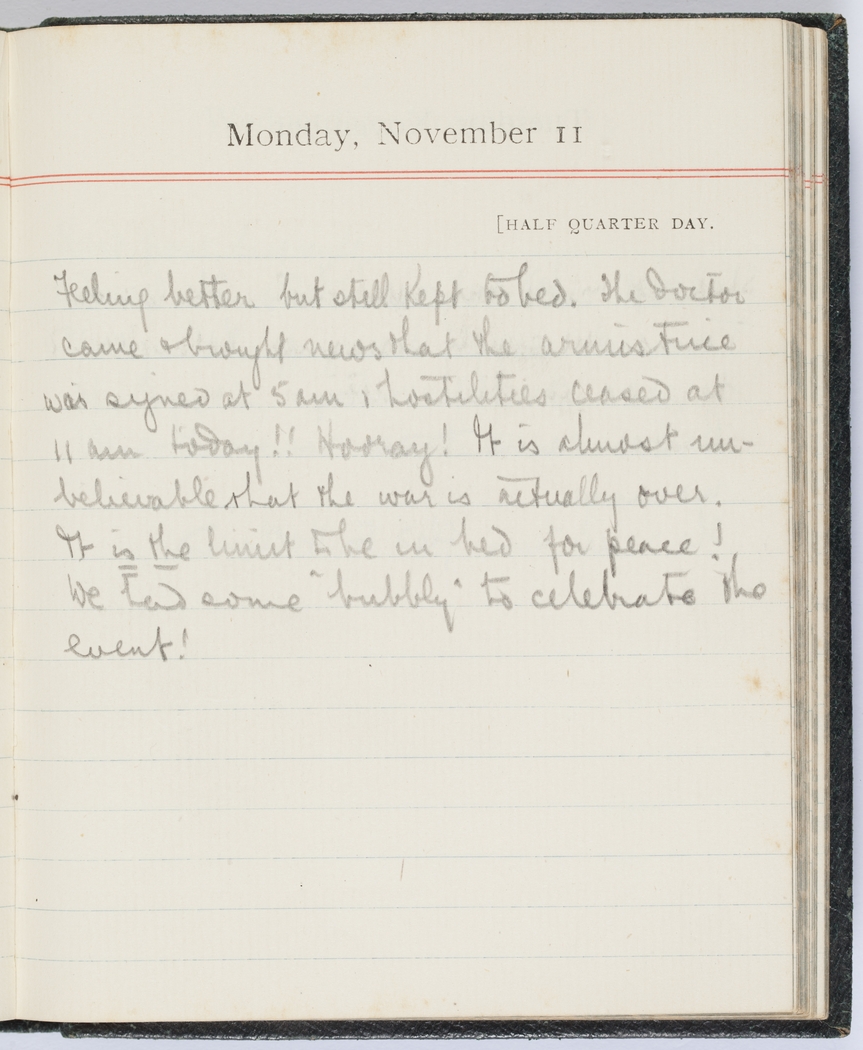 Monday, November 11
[HALF QUARTER DAY.
Feeling better but still kept to bed. The Doctor
came & brought news that the armistice
was signed at 5 am & hostilities ceased at
11 am today!! Hooray! It is almost un-
believable that the war is actually over.
It is the limit to be in bed for peace!
We had some "bubbly" to celebrate the
event!